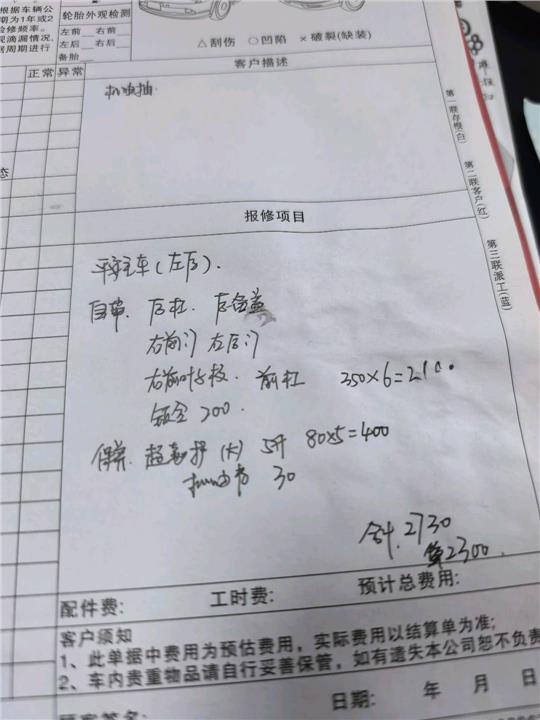 根据车辆公
期为1年或2
检修频率。
观滴漏情况,
居周期进行
轮胎外观检测
左前 右前
左后 右后
备胎
△刮伤 ○凹陷 ×破裂(缺装)
正常 异常
客户描述
第一联存根(白)
第二联客户(红)
第三联派工(蓝)
态
报修项目
车(左后).
后杠. 后备盖
右前门 左后门
右前叶子板. 前杠 350×6=2100
钣金 200.
保养. (大) 5升 80×5=400
30
合计. 2730
算2300.
配件费: 工时费: 预计总费用:
客户须知
1、此单据中费用为预估费用,实际费用以结算单为准;
2、车内贵重物品请自行妥善保管,如有遗失本公司恕不负责
日期: 年 月 日
顾客签名: